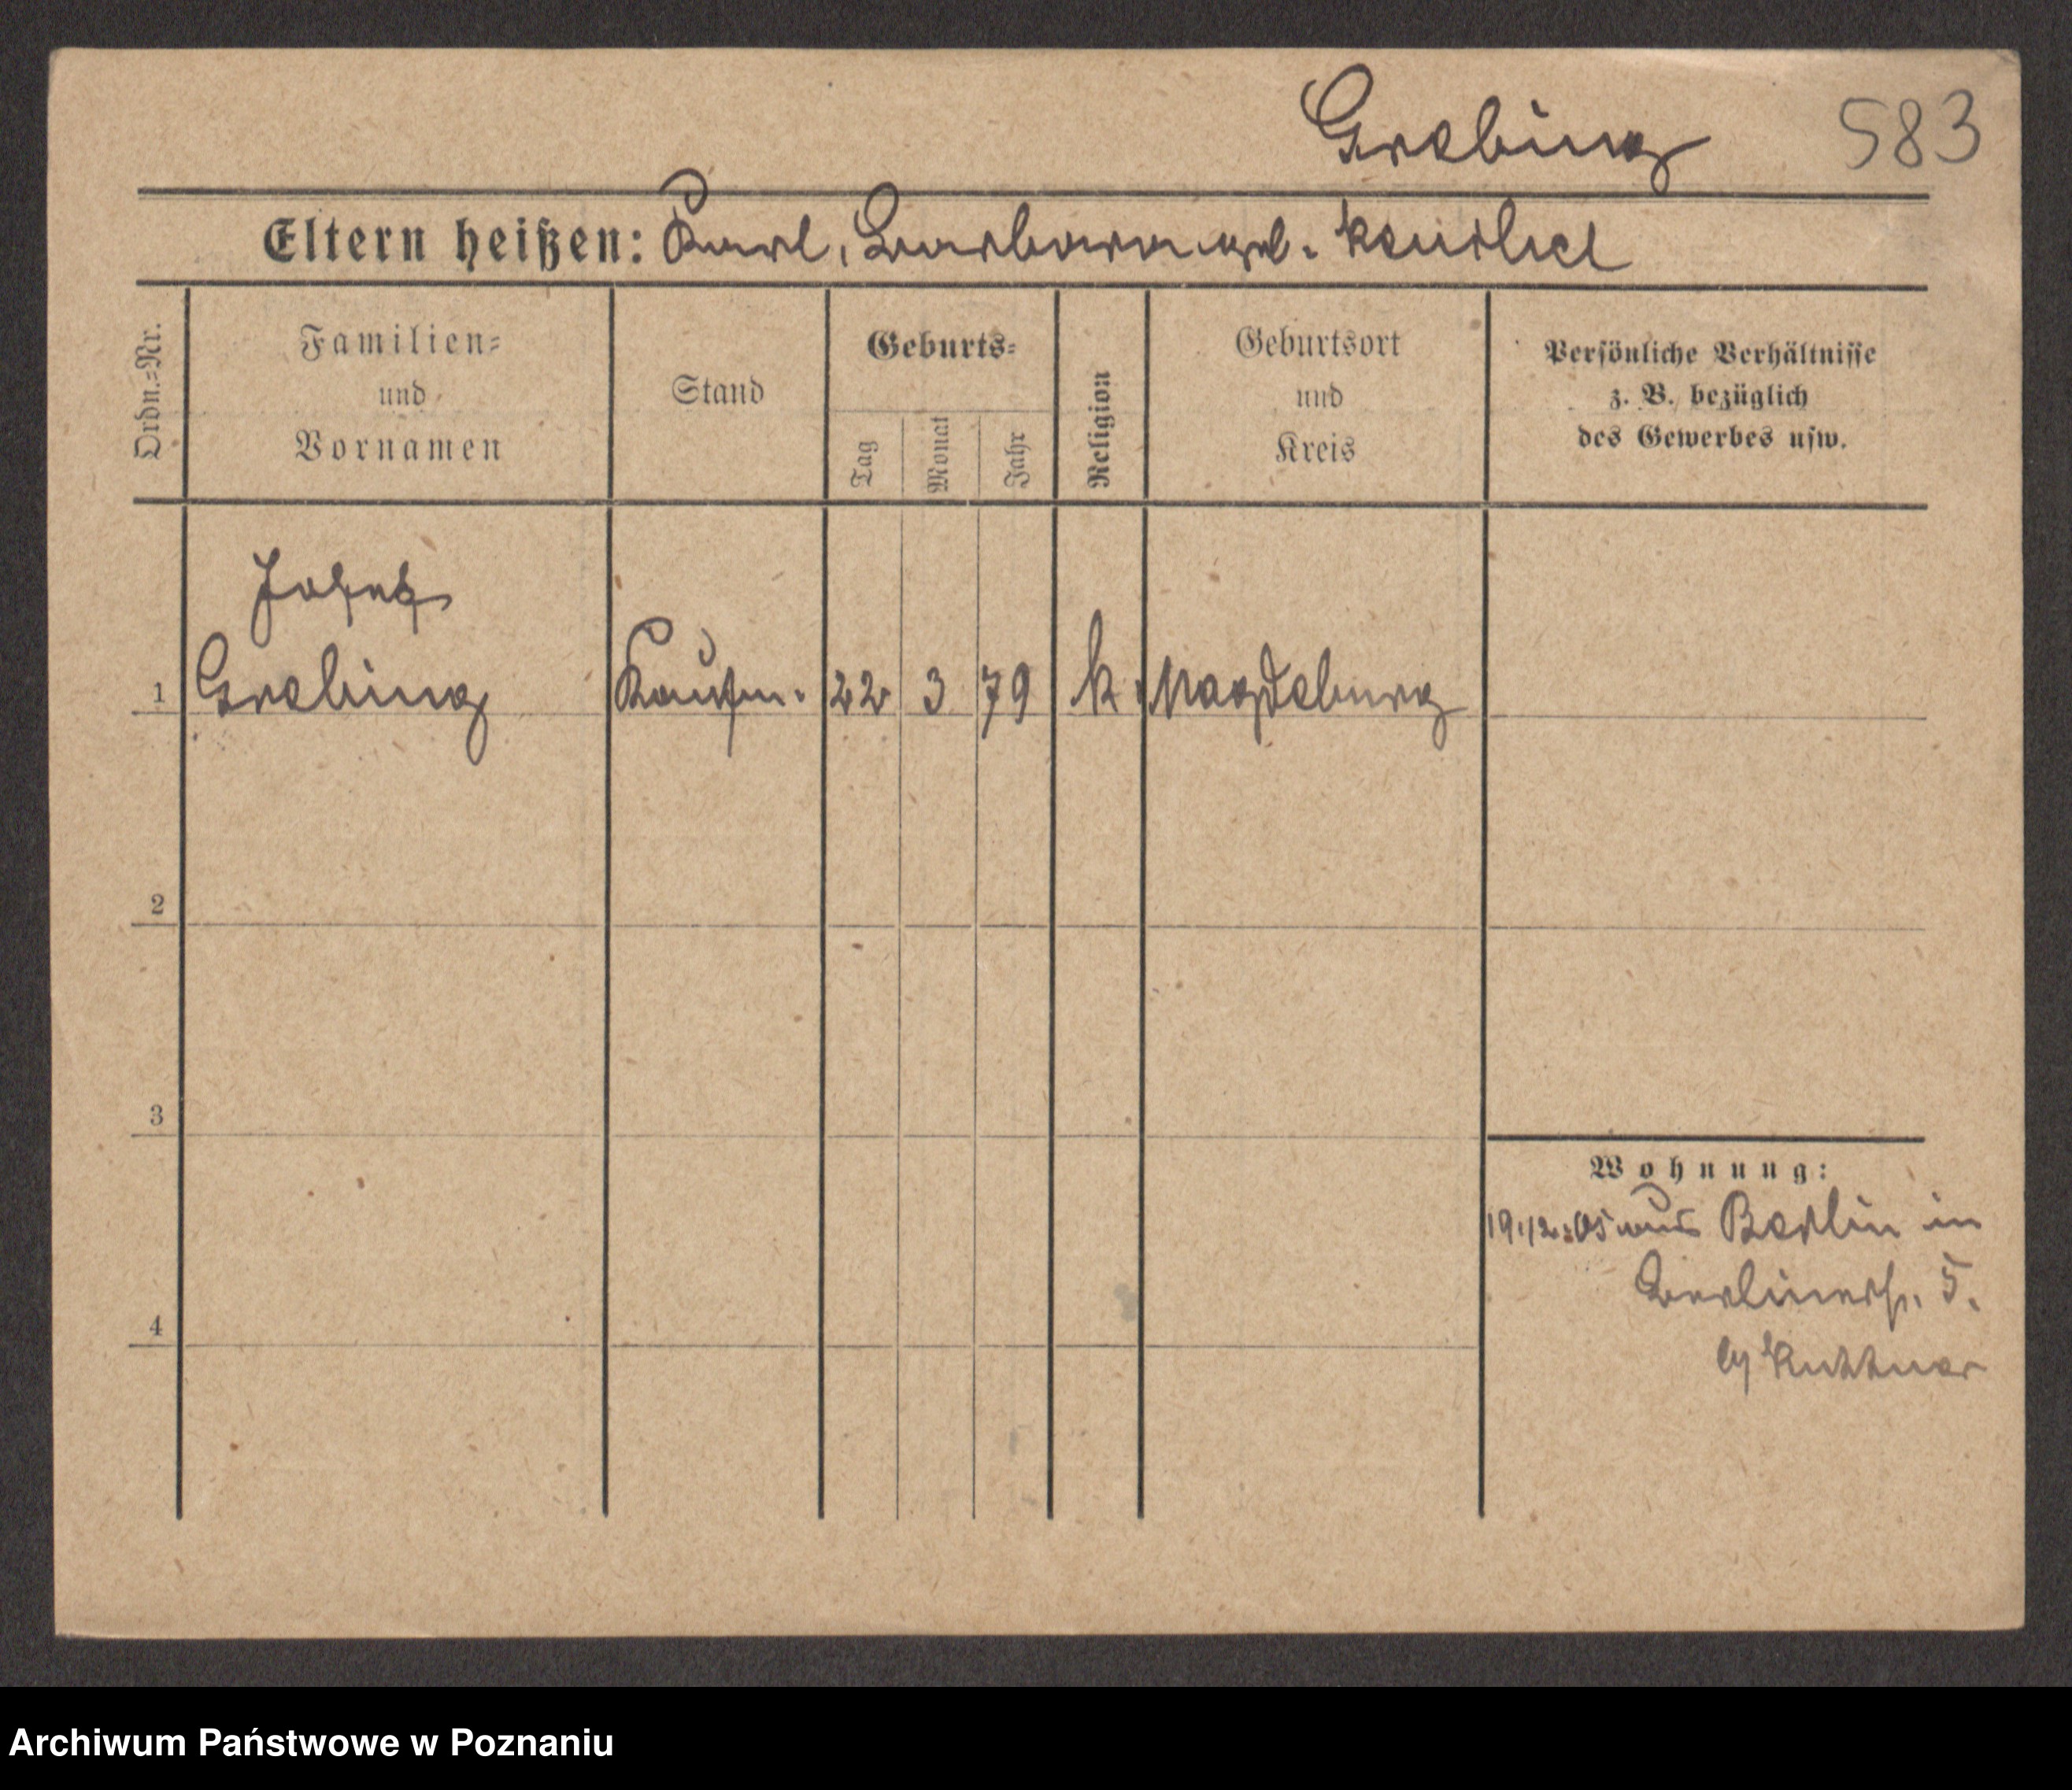 Grebing 583
Eltern heißen: Karl, Barbara geb.
Ordn.=Nr.
Familien=
und
Vornamen
Stand
Geburts=
Tag
Monat
Jahr
Religion
Geburtsort
und
Kreis
Persönliche Verhältnisse
z. B. bezüglich
des Gewerbes usw.
Josef
1 Grebing Kaufm. 22 3 79 k. Magdeburg
2
3
4
Wohnung:
19.12.05 aus Berlin in
Berlinerstr. 5.
Kuttner
Archiwum Państwowe w Poznaniu